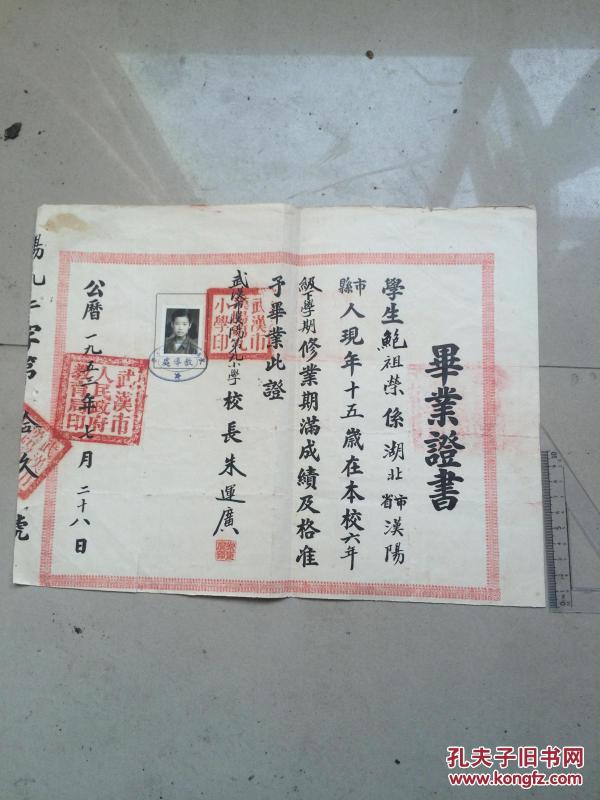 畢業證書
學生鮑祖榮係湖北省市漢陽
縣市人現年十五歲在本校六年
級下學期修業期滿成績及格准
予畢業此證
武漢市漢陽第九小學校長朱運廣
公曆一九五二年七月二十八日
陽九字第拾久號
武漢市
小學印
武漢市
人民政府
教育局印
教導處
孔夫子旧书网
www.kongfz.com